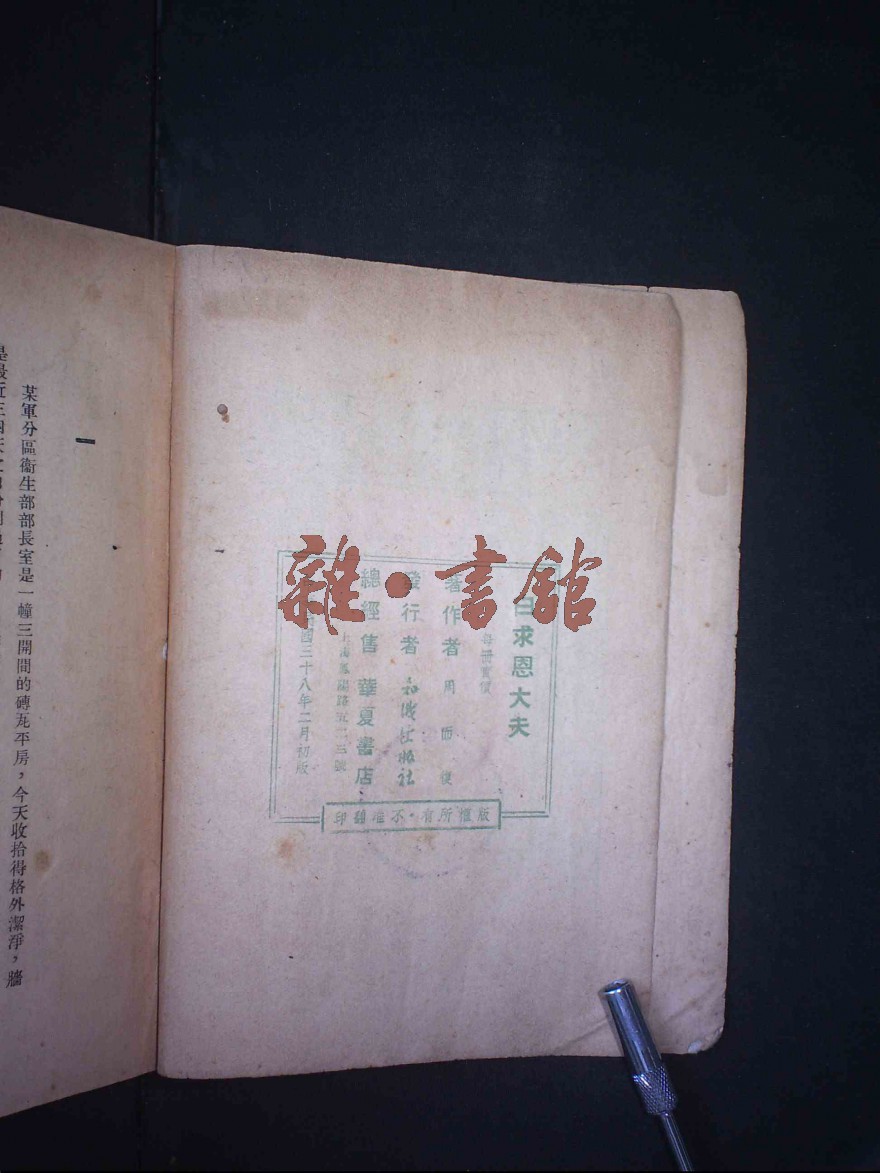 雜·書館
白求恩大夫
每冊實價
著作者 周而復
發行者 知識出版社
總經售 華夏書店
上海
路五二三號
民國三十八年二月初版
版權所有·不准翻印
一
某軍分區衞生部部長室是一幢三開間的磚瓦平房，今天收拾得格外潔淨，牆
是最近三